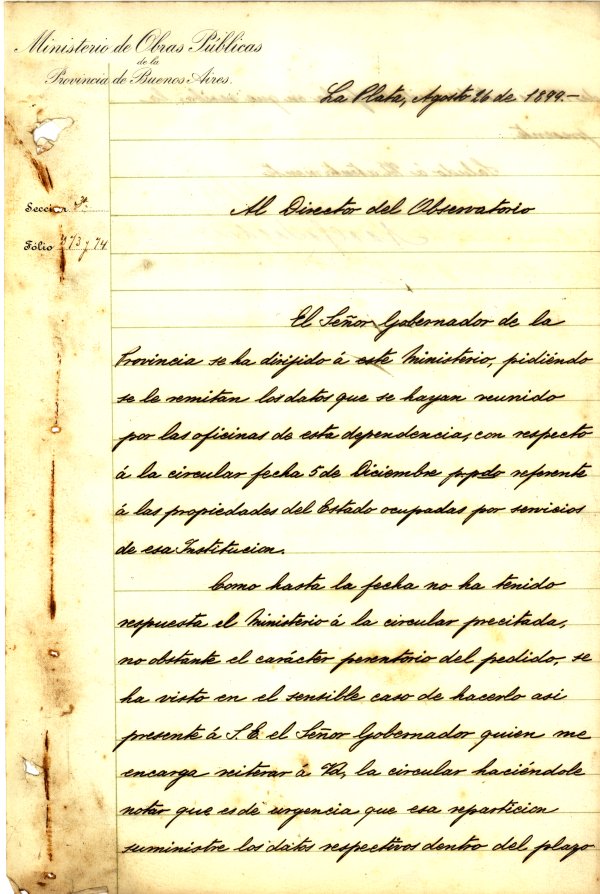 Ministerio de Obras Públicas
de la
Provincia de Buenos Aires.
La Plata, Agosto 26 de 1899.-
Sección
Fólio 273 y 74
Al Director del Observatorio
El Señor Gobernador de la
Provincia se ha dirijido á este Ministerio, pidiéndo
se le remitan los datos que se hayan reunido
por las oficinas de esta dependencia, con respecto
á la circular fecha 5 de Diciembre ppdo referente
á las propiedades del Estado ocupadas por servicios
de esa Institucion.
Como hasta la fecha no ha tenido
respuesta el Ministerio á la circular precitada,
no obstante el carácter perentorio del pedido, se
ha visto en el sensible caso de hacerlo asi
presente á S. E. el Señor Gobernador quien me
encarga reiterar á Vd, la circular haciéndole
notar que es de urgencia que esa reparticion
suministre los datos respectivos dentro del plazo